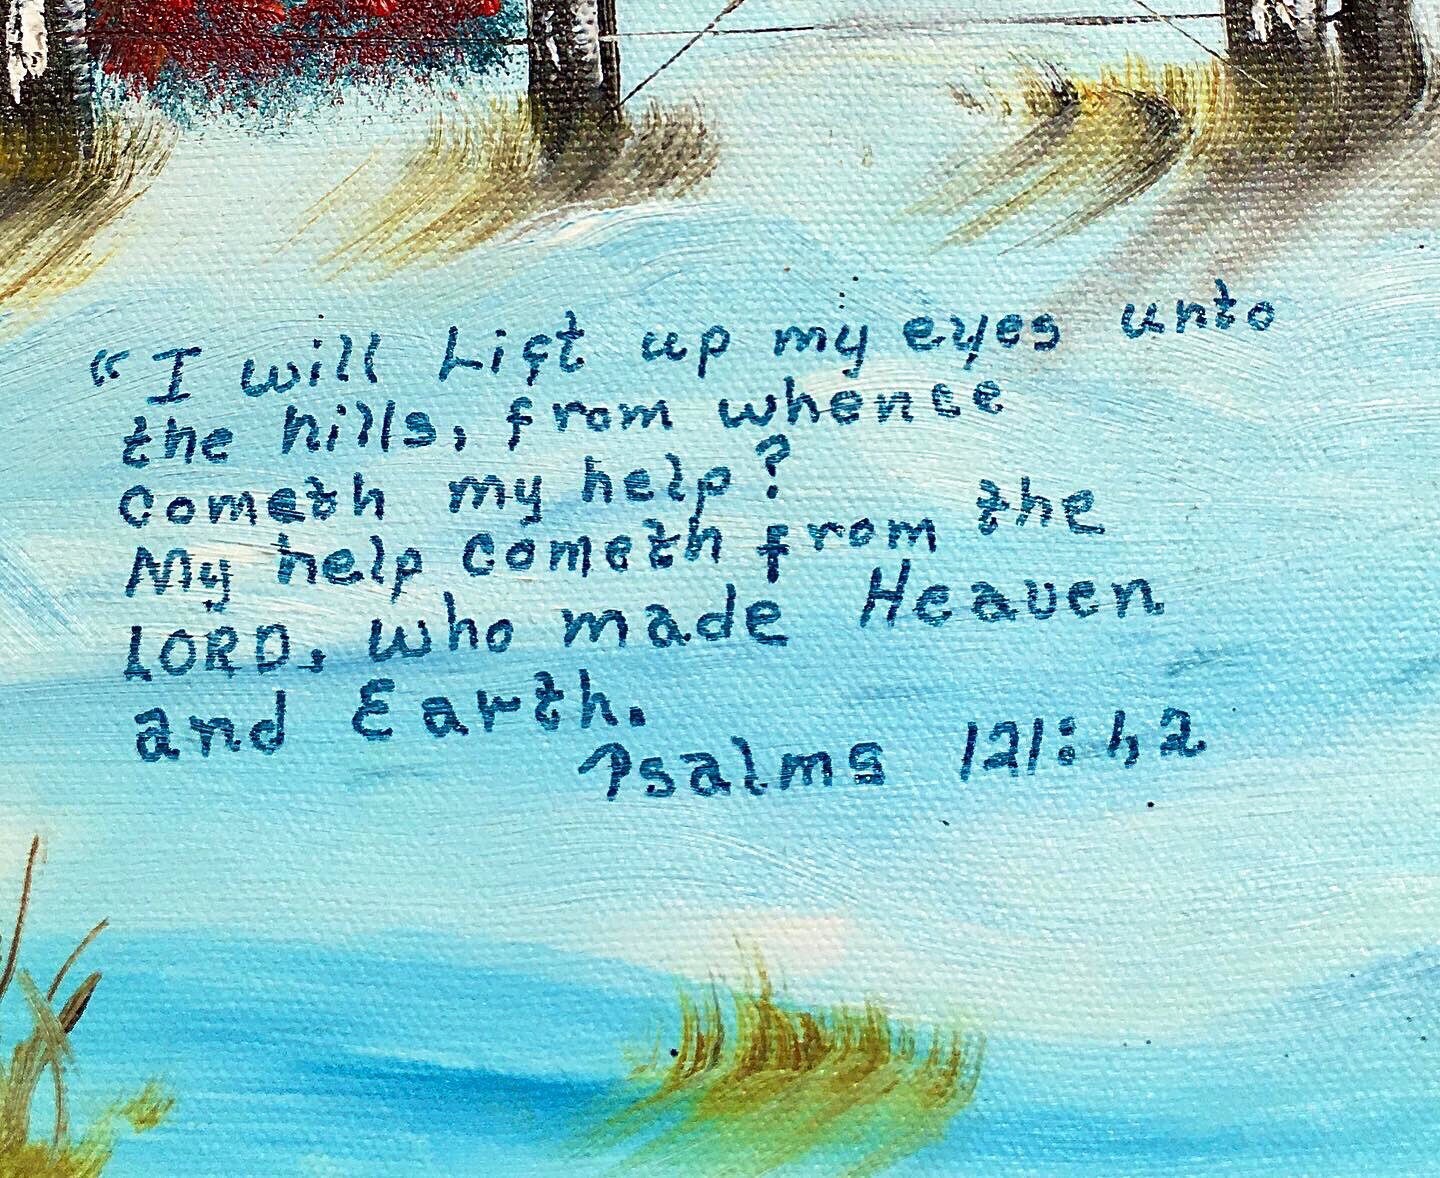 “I will Lift up my eyes unto
the hills, from whence
Cometh my help?
My help Cometh from the
LORD, who made Heaven
and Earth.
Psalms 121:1,2